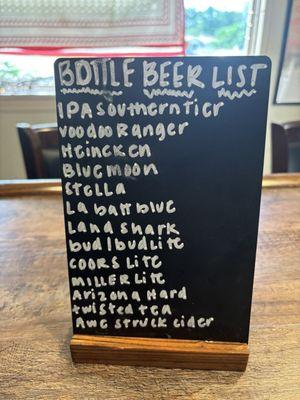 BOTTLE BEER LIST
IPA Southern Tier
Voodoo Ranger
Heineken
Blue moon
Stella
La batt blue
Land shark
bud l bud Lite
COORS Lite
MILLER Lite
Arizona Hard
twisted tea
Awe struck cider